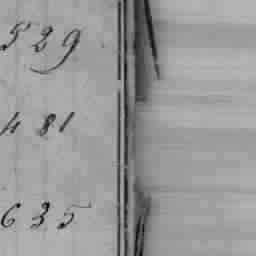 529
481
635